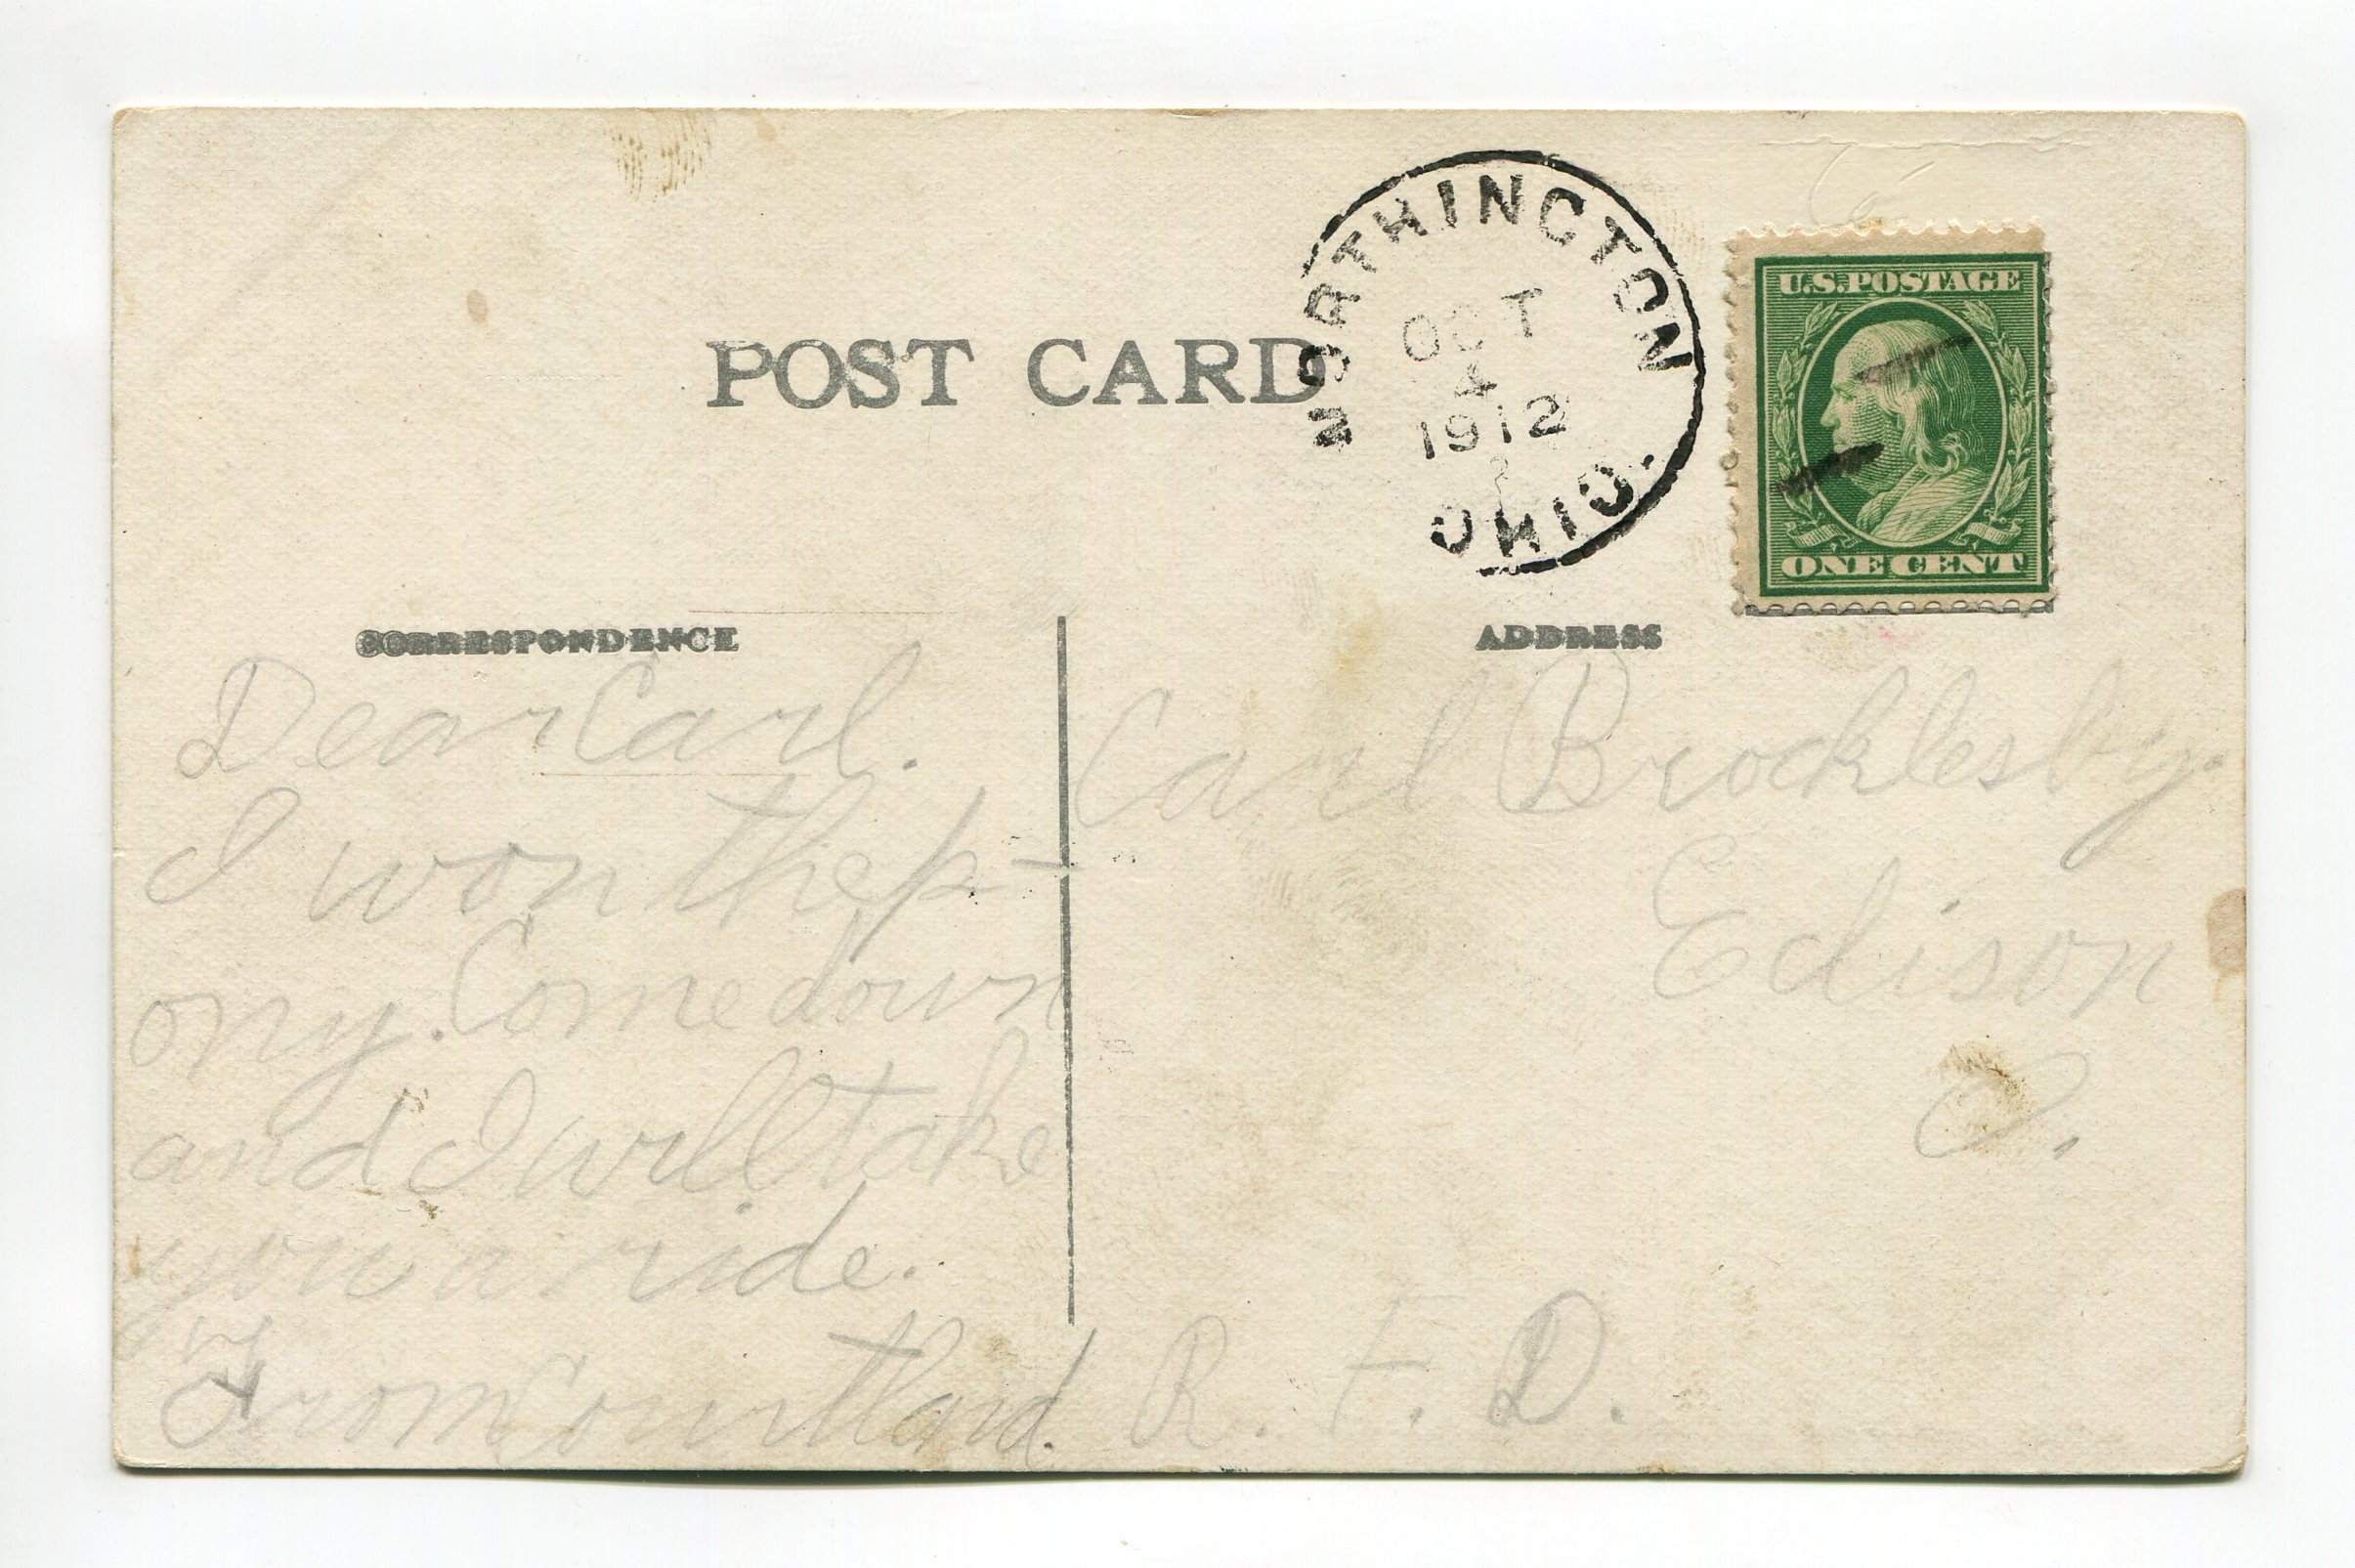 POST CARD
WORTHINGTON
OCT
4
1912
OHIO.
U.S. POSTAGE
ONE CENT
CORRESPONDENCE
ADDRESS
Dear Carl.
I won the p-
ony. Come down
and I will take
you a ride.
From Courtland.
Carl Brocklesby.
Edison
O.
R. F. D.